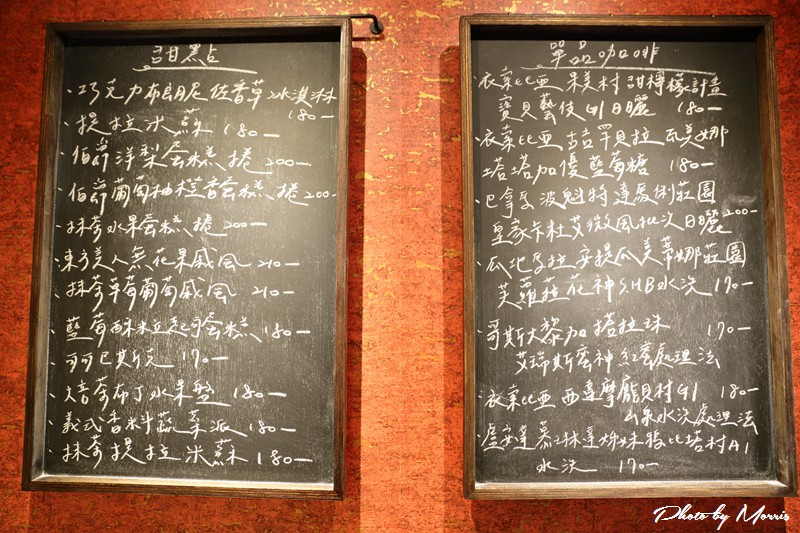 甜點
、巧克力布朗尼佐香草冰淇淋
180一
、提拉米蘇 180一
、伯爵洋梨蛋糕捲 200一
、伯爵葡萄柚橙香蛋糕捲 200一
、抹茶水果蛋糕捲 200一
、東方美人無花果戚風 210一
、抹茶草莓葡萄戚風 210一
、藍莓酥粒起司蛋糕 180一
、可可巴斯克 170一
、焙茶布丁水果盤 180一
、義式香料蔬菜派 180一
、抹茶提拉米蘇 180一
單品咖啡
、衣索比亞 果美村 甜檸檬計畫
寶貝藝伎 G1 日曬 180一
、衣索比亞 古吉 罕貝拉 瓦美娜
塔塔加優藍莓糖 180一
、巴拿馬波魁特達處例莊園
皇家卡杜艾微風批次日曬 200一
、瓜地馬拉安提瓜美蒂娜莊園
芙蘿菈花神 SHB 水洗 170一
、哥斯大黎加塔拉珠 170一
艾瑞斯蜜神 紅蜜處理法
、衣索比亞 西達摩 龍貝村 G1 180一
水洗處理法
、盧安達慕林達姊妹 比塔村 A1
水洗 170一
Photo by Morris